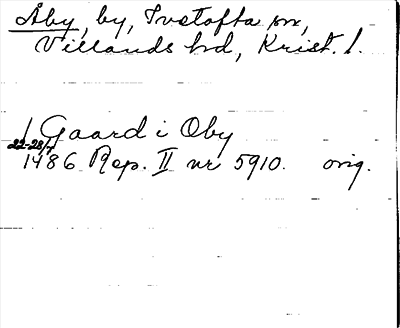 Åby, by, Ivetofta sn,
Villands hd, Krist. l.
1 Gaard i Oby
22-28/7
1486 Rep. II nr 5910. orig.